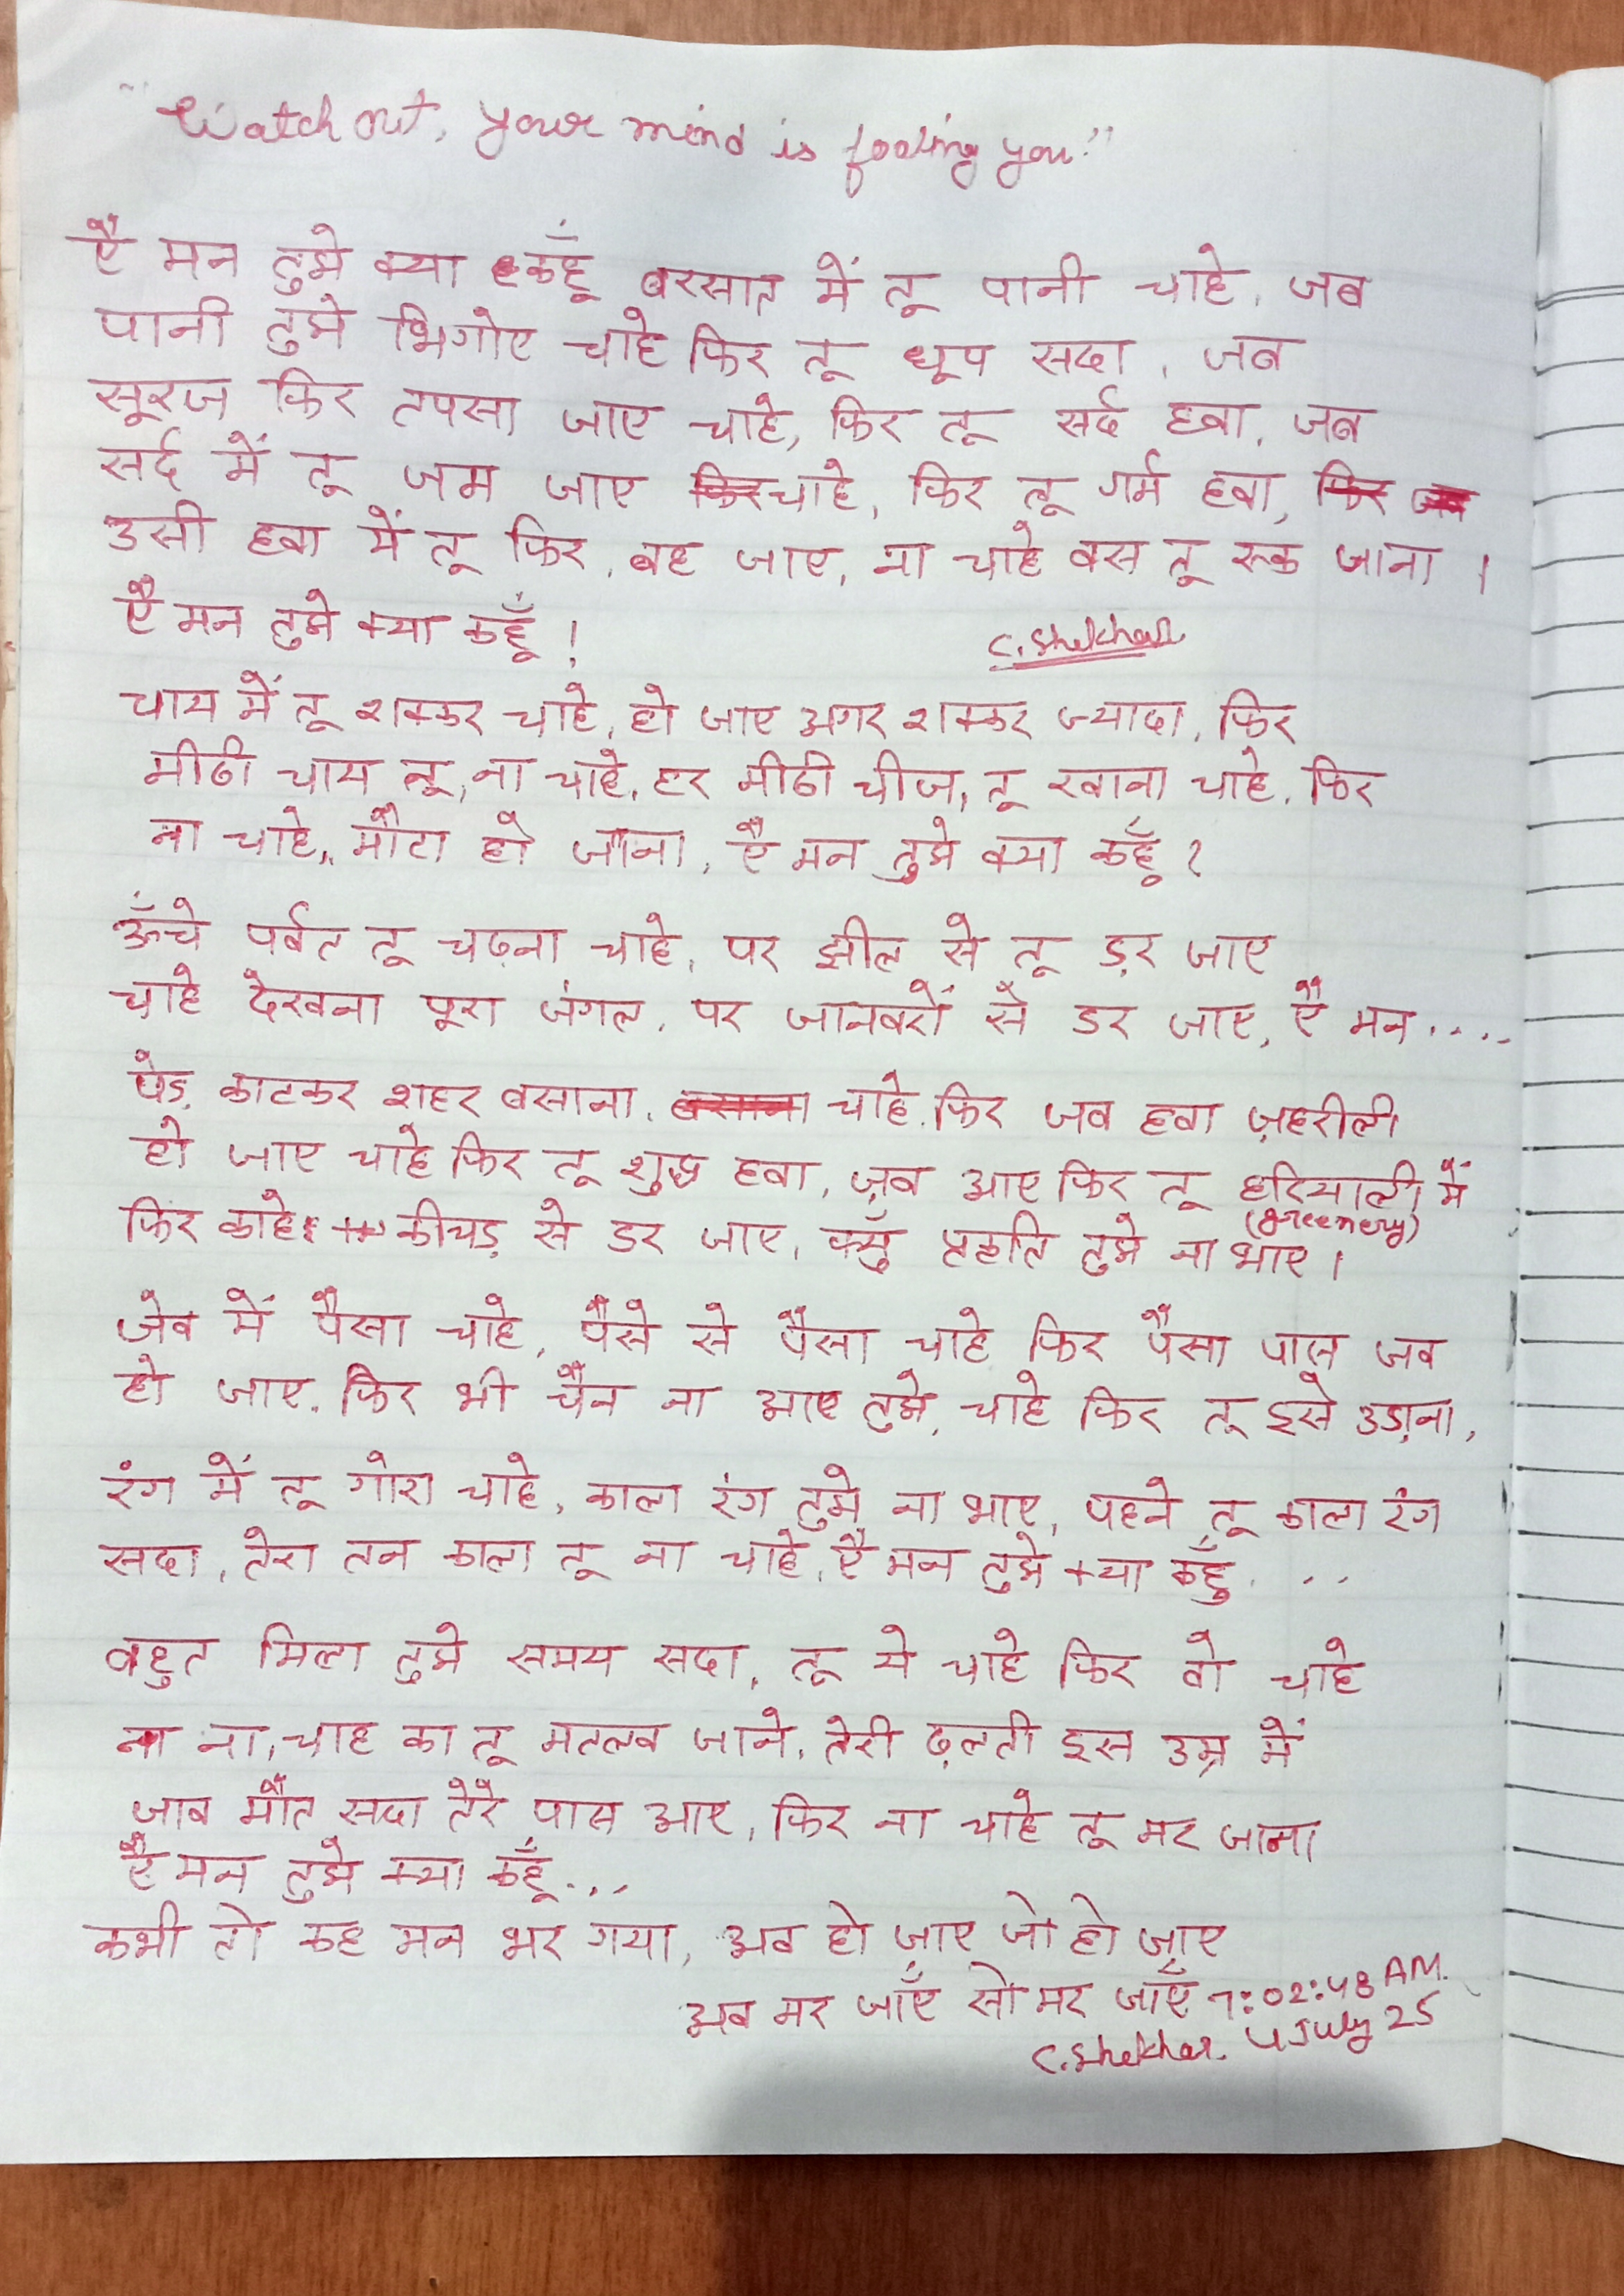 "Watch out, your mind is fooling you."
ऐ मन तुझे क्या कहूँ बरसात में तू पानी चाहे, जब
पानी तुझे भिगोए चाहे फिर तू धूप सदा, जब
सूरज फिर तपसा जाए चाहे, फिर तू सर्द हवा, जब
सर्द में तू जम जाए चाहे, फिर तू गर्म हवा,
उसी हवा में तू फिर, बह जाए, ना चाहे बस तू रूक जाना ।
ऐ मन तुझे क्या कहूँ !
C. Shekhar
चाय में तू शक्कर चाहे, हो जाए अगर शक्कर ज्यादा, फिर
मीठी चाय तू, ना चाहे, हर मीठी चीज, तू खाना चाहे, फिर
ना चाहे, मौटा हो जाना, ऐ मन तुझे क्या कहूँ ?
ऊँचे पर्वत तू चढ़ना चाहे, पर झील से तू ड़र जाए
चाहे देखना पूरा जंगल, पर जानवरों से डर जाए, ऐ मन ....
पेड़ काटकर शहर बसाना, चाहे फिर जब हवा ज़हरीली
हो जाए चाहे फिर तू शुद्ध हवा, जब आए फिर तू हरियाली में
(Greenery)
फिर काहे कीचड़ से डर जाए, क्युँ प्रकृति तुझे ना भाए ।
जेब में पैसा चाहे, पैसे से पैसा चाहे फिर पैसा पास जब
हो जाए, फिर भी चैन ना आए तुझे, चाहे फिर तू इसे उड़ाना,
रंग में तू गोरा चाहे, काला रंग तुझे ना भाए, पहने तू काला रंग
सदा, तेरा तन काला तू ना चाहे, ऐ मन तुझे क्या कहुँ ...
बहुत मिला तुझे समय सदा, तू ये चाहे फिर वो चाहे
ना ना, चाह का तू मतलब जाने, तेरी ढ़लती इस उम्र में
जब मौत सदा तेरे पास आए, फिर ना चाहे तू मर जाना
ऐ मन तुझे क्या कहूँ...
कभी तो कह मन भर गया, अब हो जाए जो हो जाए
अब मर जाएँ सो मर जाएँ 7:02:48 AM.
C. Shekhar. 4 July 25